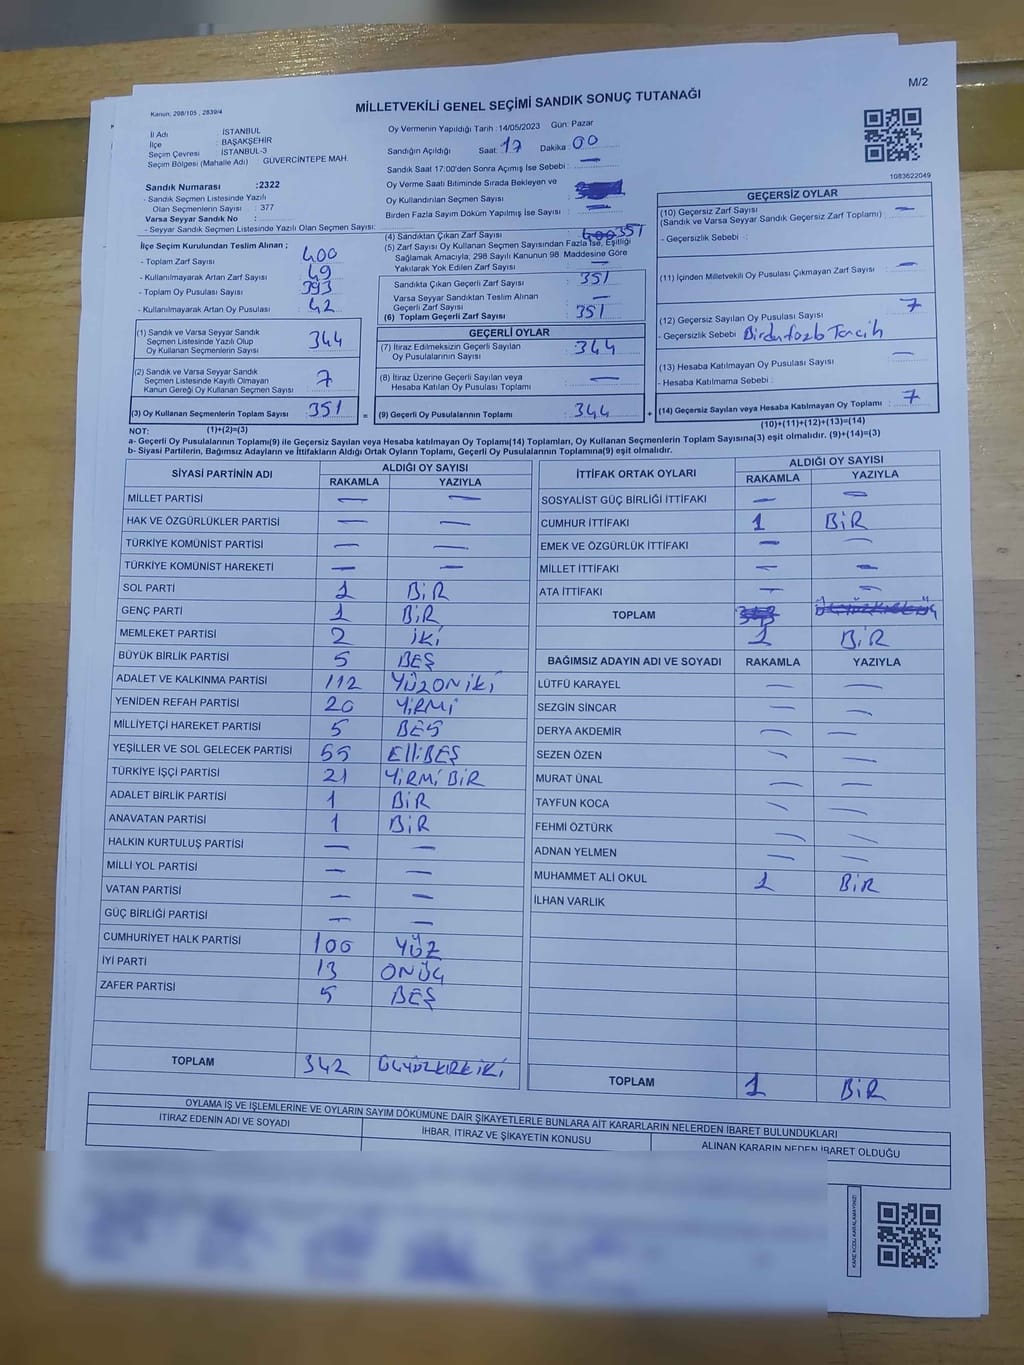 M/2
Kanun: 298/105 , 2839/4
MİLLETVEKİLİ GENEL SEÇİMİ SANDIK SONUÇ TUTANAĞI
İl Adı : İSTANBUL
İlçe : BAŞAKŞEHİR
Seçim Çevresi : İSTANBUL-3
Seçim Bölgesi (Mahalle Adı) : GÜVERCİNTEPE MAH.
Sandık Numarası :2322
- Sandık Seçmen Listesinde Yazılı
Olan Seçmenlerin Sayısı : 377
Varsa Seyyar Sandık No :
- Seyyar Sandık Seçmen Listesinde Yazılı Olan Seçmen Sayısı:
İlçe Seçim Kurulundan Teslim Alınan ;
- Toplam Zarf Sayısı : 400
- Kullanılmayarak Artan Zarf Sayısı : 49
- Toplam Oy Pusulası Sayısı : 393
- Kullanılmayarak Artan Oy Pusulası : 42
(1) Sandık ve Varsa Seyyar Sandık
Seçmen Listesinde Yazılı Olup
Oy Kullanan Seçmenlerin Sayısı 344
(2) Sandık ve Varsa Seyyar Sandık
Seçmen Listesinde Kayıtlı Olmayan
Kanun Gereği Oy Kullanan Seçmen Sayısı 7
(3) Oy Kullanan Seçmenlerin Toplam Sayısı 351 =
Oy Vermenin Yapıldığı Tarih : 14/05/2023 Gün: Pazar
Sandığın Açıldığı Saat: 17 Dakika: 00
Sandık Saat 17:00'den Sonra Açımış İse Sebebi : —
Oy Verme Saati Bitiminde Sırada Bekleyen ve
Oy Kullandırılan Seçmen Sayısı :
Birden Fazla Sayım Döküm Yapılmış İse Sayısı : —
(4) Sandıktan Çıkan Zarf Sayısı : 351
(5) Zarf Sayısı Oy Kullanan Seçmen Sayısından Fazla İse, Eşitliği
Sağlamak Amacıyla, 298 Sayılı Kanunun 98 Maddesine Göre
Yakılarak Yok Edilen Zarf Sayısı : —
Sandıkta Çıkan Geçerli Zarf Sayısı : 351
Varsa Seyyar Sandıktan Teslim Alınan
Geçerli Zarf Sayısı : —
(6) Toplam Geçerli Zarf Sayısı : 351
GEÇERLİ OYLAR
(7) İtiraz Edilmeksizin Geçerli Sayılan
Oy Pusulalarının Sayısı : 344
(8) İtiraz Üzerine Geçerli Sayılan veya
Hesaba Katılan Oy Pusulası Toplamı : —
(9) Geçerli Oy Pusulalarının Toplamı : 344 +
1083622049
GEÇERSİZ OYLAR
(10) Geçersiz Zarf Sayısı
(Sandık ve Varsa Seyyar Sandık Geçersiz Zarf Toplamı) : —
- Geçersizlik Sebebi :
(11) İçinden Milletvekili Oy Pusulası Çıkmayan Zarf Sayısı : —
(12) Geçersiz Sayılan Oy Pusulası Sayısı : 7
- Geçersizlik Sebebi : Birden fazla Tercih
(13) Hesaba Katılmayan Oy Pusulası Sayısı : —
- Hesaba Katılmama Sebebi :
(14) Geçersiz Sayılan veya Hesaba Katılmayan Oy Toplamı : 7
NOT: (1)+(2)=(3)
(10)+(11)+(12)+(13)=(14)
a- Geçerli Oy Pusulalarının Toplamı(9) ile Geçersiz Sayılan veya Hesaba katılmayan Oy Toplamı(14) Toplamları, Oy Kullanan Seçmenlerin Toplam Sayısına(3) eşit olmalıdır. (9)+(14)=(3)
b- Siyasi Partilerin, Bağımsız Adayların ve İttifakların Aldığı Ortak Oyların Toplamı, Geçerli Oy Pusulalarının Toplamına(9) eşit olmalıdır.
SİYASİ PARTİNİN ADI ALDIĞI OY SAYISI
RAKAMLA YAZIYLA
MİLLET PARTİSİ — —
HAK VE ÖZGÜRLÜKLER PARTİSİ — —
TÜRKİYE KOMÜNİST PARTİSİ — —
TÜRKİYE KOMÜNİST HAREKETİ — —
SOL PARTİ 1 BİR
GENÇ PARTİ 1 BİR
MEMLEKET PARTİSİ 2 İKİ
BÜYÜK BİRLİK PARTİSİ 5 BEŞ
ADALET VE KALKINMA PARTİSİ 112 YÜZONİKİ
YENİDEN REFAH PARTİSİ 20 YİRMİ
MİLLİYETÇİ HAREKET PARTİSİ 5 BEŞ
YEŞİLLER VE SOL GELECEK PARTİSİ 55 ElliBEŞ
TÜRKİYE İŞÇİ PARTİSİ 21 YİRMİ BİR
ADALET BİRLİK PARTİSİ 1 BİR
ANAVATAN PARTİSİ 1 BİR
HALKIN KURTULUŞ PARTİSİ — —
MİLLİ YOL PARTİSİ — —
VATAN PARTİSİ — —
GÜÇ BİRLİĞİ PARTİSİ — —
CUMHURİYET HALK PARTİSİ 100 YÜZ
İYİ PARTİ 13 ONÜÇ
ZAFER PARTİSİ 5 BEŞ
TOPLAM 342 ÜÇYÜZKIRKİKİ
İTTİFAK ORTAK OYLARI ALDIĞI OY SAYISI
RAKAMLA YAZIYLA
SOSYALİST GÜÇ BİRLİĞİ İTTİFAKI — —
CUMHUR İTTİFAKI 1 BİR
EMEK VE ÖZGÜRLÜK İTTİFAKI — —
MİLLET İTTİFAKI — —
ATA İTTİFAKI — —
TOPLAM
1 BİR
BAĞIMSIZ ADAYIN ADI VE SOYADI RAKAMLA YAZIYLA
LÜTFÜ KARAYEL — —
SEZGİN SİNCAR — —
DERYA AKDEMİR — —
SEZEN ÖZEN — —
MURAT ÜNAL — —
TAYFUN KOCA — —
FEHMİ ÖZTÜRK — —
ADNAN YELMEN — —
MUHAMMET ALİ OKUL 1 BİR
İLHAN VARLIK
TOPLAM 1 BİR
OYLAMA İŞ VE İŞLEMLERİNE VE OYLARIN SAYIM DÖKÜMÜNE DAİR ŞİKAYETLERLE BUNLARA AİT KARARLARIN NELERDEN İBARET BULUNDUKLARI
İTİRAZ EDENİN ADI VE SOYADI İHBAR, İTİRAZ VE ŞİKAYETİN KONUSU ALINAN KARARIN NEDEN İBARET OLDUĞU
KARE KODU KARALAMAYINIZ!